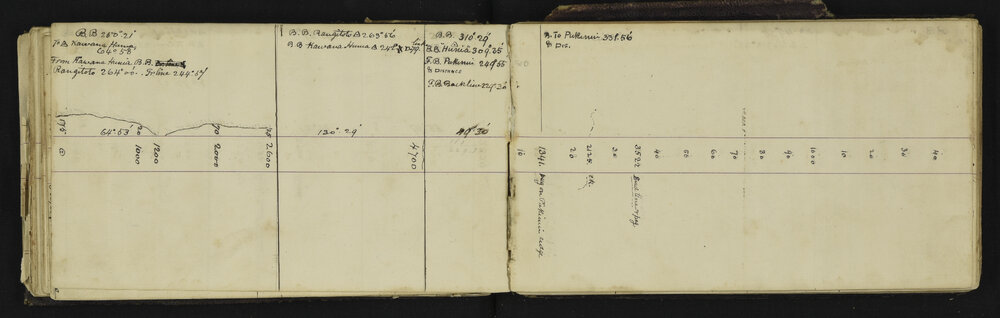 B.B. 250° 21'
F.B. Kawana Hunia
64° 53'
From Kawana Hunia B.B.
Rangitoto 264° 00'. To line 244° 57'
B.B. Rangitoto Δ 263° 56'
B.B. Kawana Hunia Δ 242°
B.B. 310° 29'
B.B. Hunia 309° 35
F.B. Pukenui 249° 55
& Distance
F.B. Backline 229° 30
To Pukenui 331° 56
& Dis.
64° 53'
20
1000
1200
70
2000
2600
130° 29'
4700
49° 30'
10
1341
Peg on Pukenui ridge
20
2125
ck.
30
3522
Bush line & peg
40
50
60
70
80
90
1000
10
20
30
40